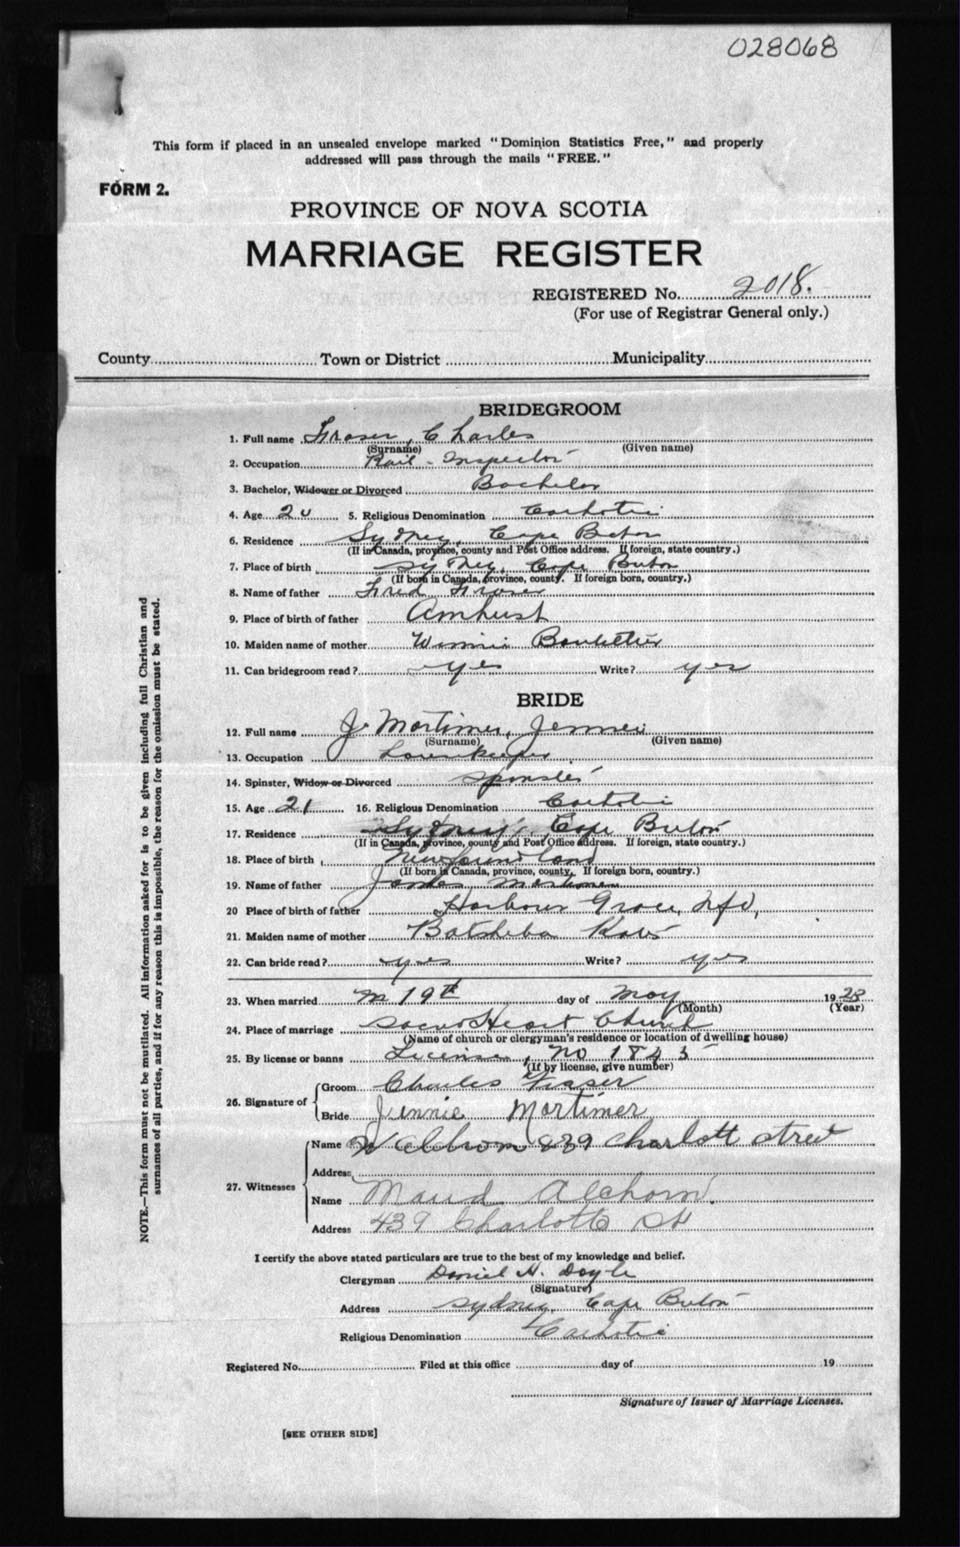 028068
This form if placed in an unsealed envelope marked "Dominion Statistics Free," and properly
addressed will pass through the mails "FREE."
FORM 2.
PROVINCE OF NOVA SCOTIA
MARRIAGE REGISTER
REGISTERED No. 2018.
(For use of Registrar General only.)
County Town or District Municipality
BRIDEGROOM
1. Full name Fraser, Charles
(Surname) (Given name)
2. Occupation Rail-Inspector
3. Bachelor, Widower or Divorced Bachelor
4. Age 20 5. Religious Denomination Catholic
6. Residence Sydney, Cape Breton
(If in Canada, province, county and Post Office address. If foreign, state country.)
7. Place of birth Sydney, Cape Breton
(If born in Canada, province, county. If foreign born, country.)
8. Name of father Fred Fraser
9. Place of birth of father Amherst
10. Maiden name of mother Winnie
11. Can bridegroom read? yes Write? yes
BRIDE
12. Full name J. Mortimer, Jennie
(Surname) (Given name)
13. Occupation housekeeper
14. Spinster, Widow or Divorced Spinster
15. Age 21 16. Religious Denomination Catholic
17. Residence Sydney, Cape Breton
(If in Canada, province, county and Post Office address. If foreign, state country.)
18. Place of birth Newfoundland
(If born in Canada, province, county. If foreign born, country.)
19. Name of father James Mortimer
20 Place of birth of father Harbour Grace, Nfd,
21. Maiden name of mother Batsheba
22. Can bride read? yes Write? yes
23. When married 19th day of May 1928
(Month) (Year)
24. Place of marriage Sacred Heart Church
(Name of church or clergyman's residence or location of dwelling house)
25. By license or banns License, No 1843
(If by license, give number)
26. Signature of Groom Charles Fraser
Bride Jennie Mortimer
27. Witnesses Name Charlott street
Address
Name Maud Alchorn.
Address 439 Charlotte St
I certify the above stated particulars are true to the best of my knowledge and belief.
Clergyman Daniel H. Doyle
(Signature)
Address Sydney, Cape Breton
Religious Denomination Catholic
Registered No. Filed at this office day of 19
Signature of Issuer of Marriage Licenses.
[SEE OTHER SIDE]
NOTE.—This form must not be mutilated. All information asked for is to be given including full Christian and
surnames of all parties, and if for any reason this is impossible, the reason for the omission must be stated.